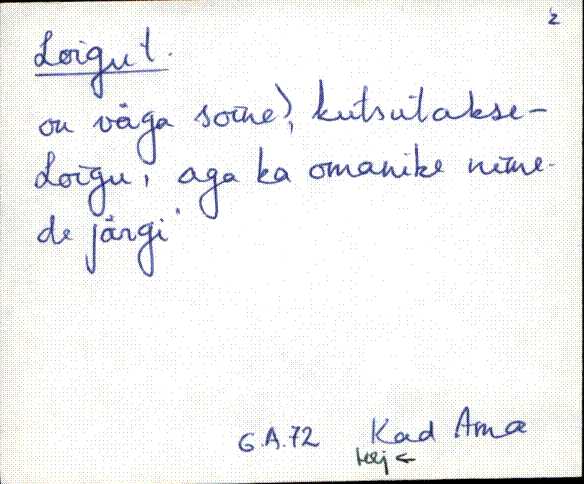 2
Loigu t.
on väga soine), kutsutakse-
Loigu, aga ka omanike nime-
de järgi.
G.A.72 Kad Ama
Kej ←